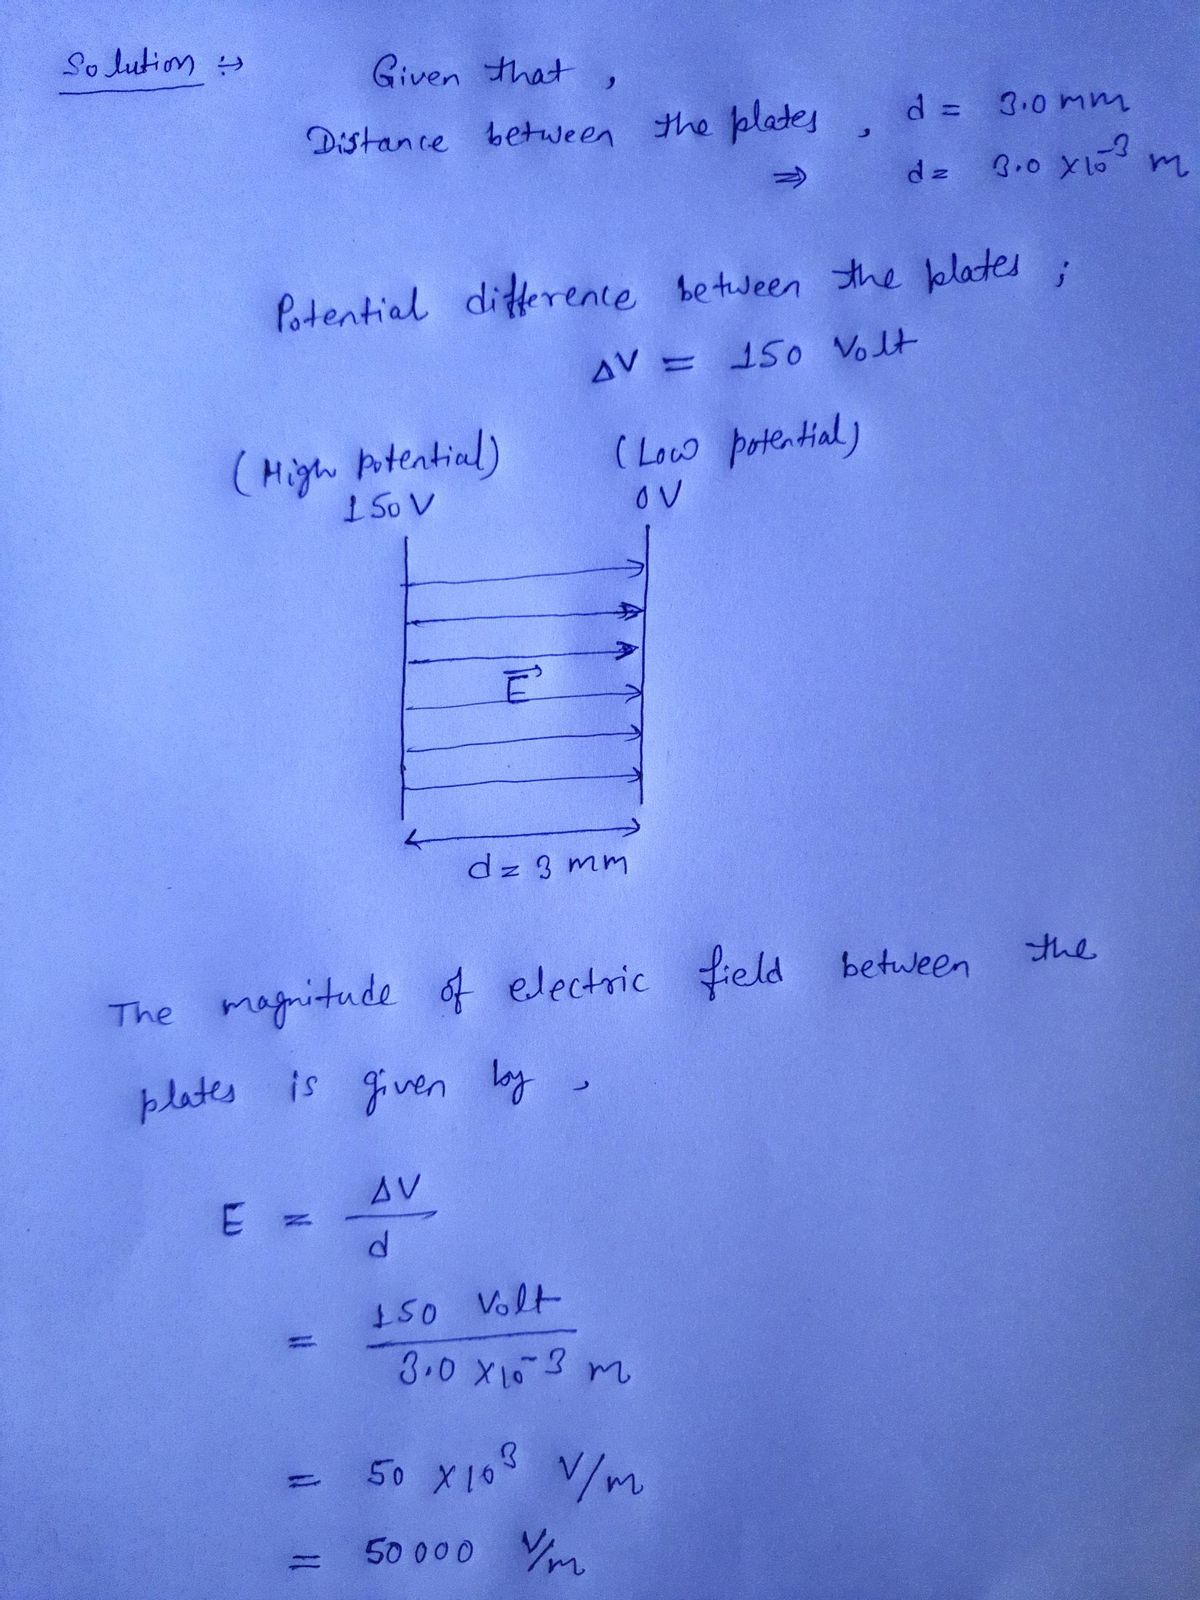 Solution :→ Given that ,
Distance between the plates , d = 3.0 mm
⇒ d = 3.0 × 10⁻³ m
Potential difference between the plates ;
ΔV = 150 Volt
(High potential) (Low potential)
150V 0V
E⃗
d = 3 mm
The magnitude of electric field between the
plates is given by ,
E = ΔV / d
= 150 Volt / 3.0 × 10⁻³ m
= 50 × 10³ V/m
= 50000 V/m